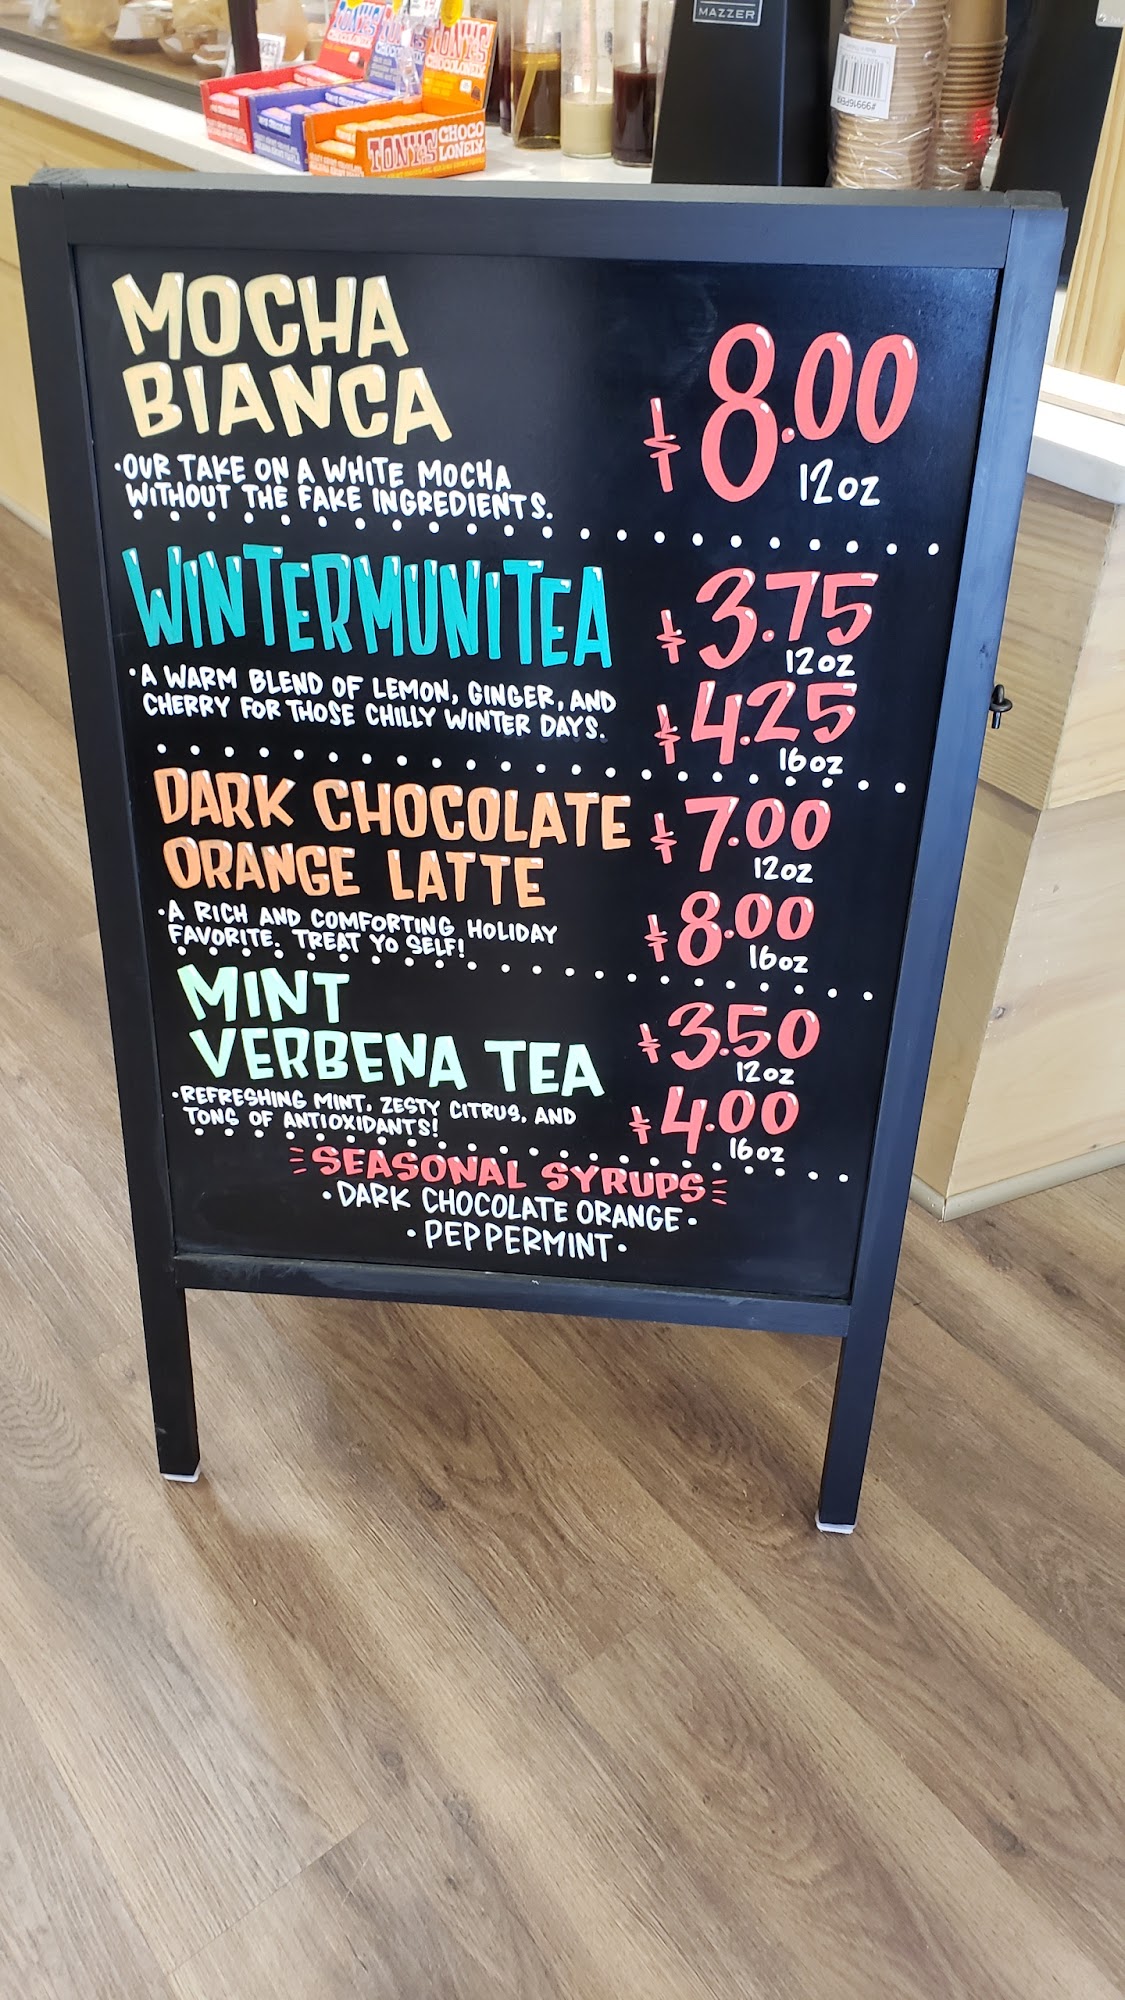 TONY'S
CHOCOLONELY
TONY'S CHOCO
LONELY
MAZZER
#99916PEKB
MOCHA
BIANCA
$8.00
12oz
•OUR TAKE ON A WHITE MOCHA
WITHOUT THE FAKE INGREDIENTS.
WINTERMUNITEA
$3.75
12oz
•A WARM BLEND OF LEMON, GINGER, AND
CHERRY FOR THOSE CHILLY WINTER DAYS.
$4.25
16oz
DARK CHOCOLATE
ORANGE LATTE
$7.00
12oz
•A RICH AND COMFORTING HOLIDAY
FAVORITE. TREAT YO SELF!
$8.00
16oz
MINT
VERBENA TEA
$3.50
12oz
•REFRESHING MINT, ZESTY CITRUS, AND
TONS OF ANTIOXIDANTS!
$4.00
16oz
SEASONAL SYRUPS
•DARK CHOCOLATE ORANGE•
•PEPPERMINT•